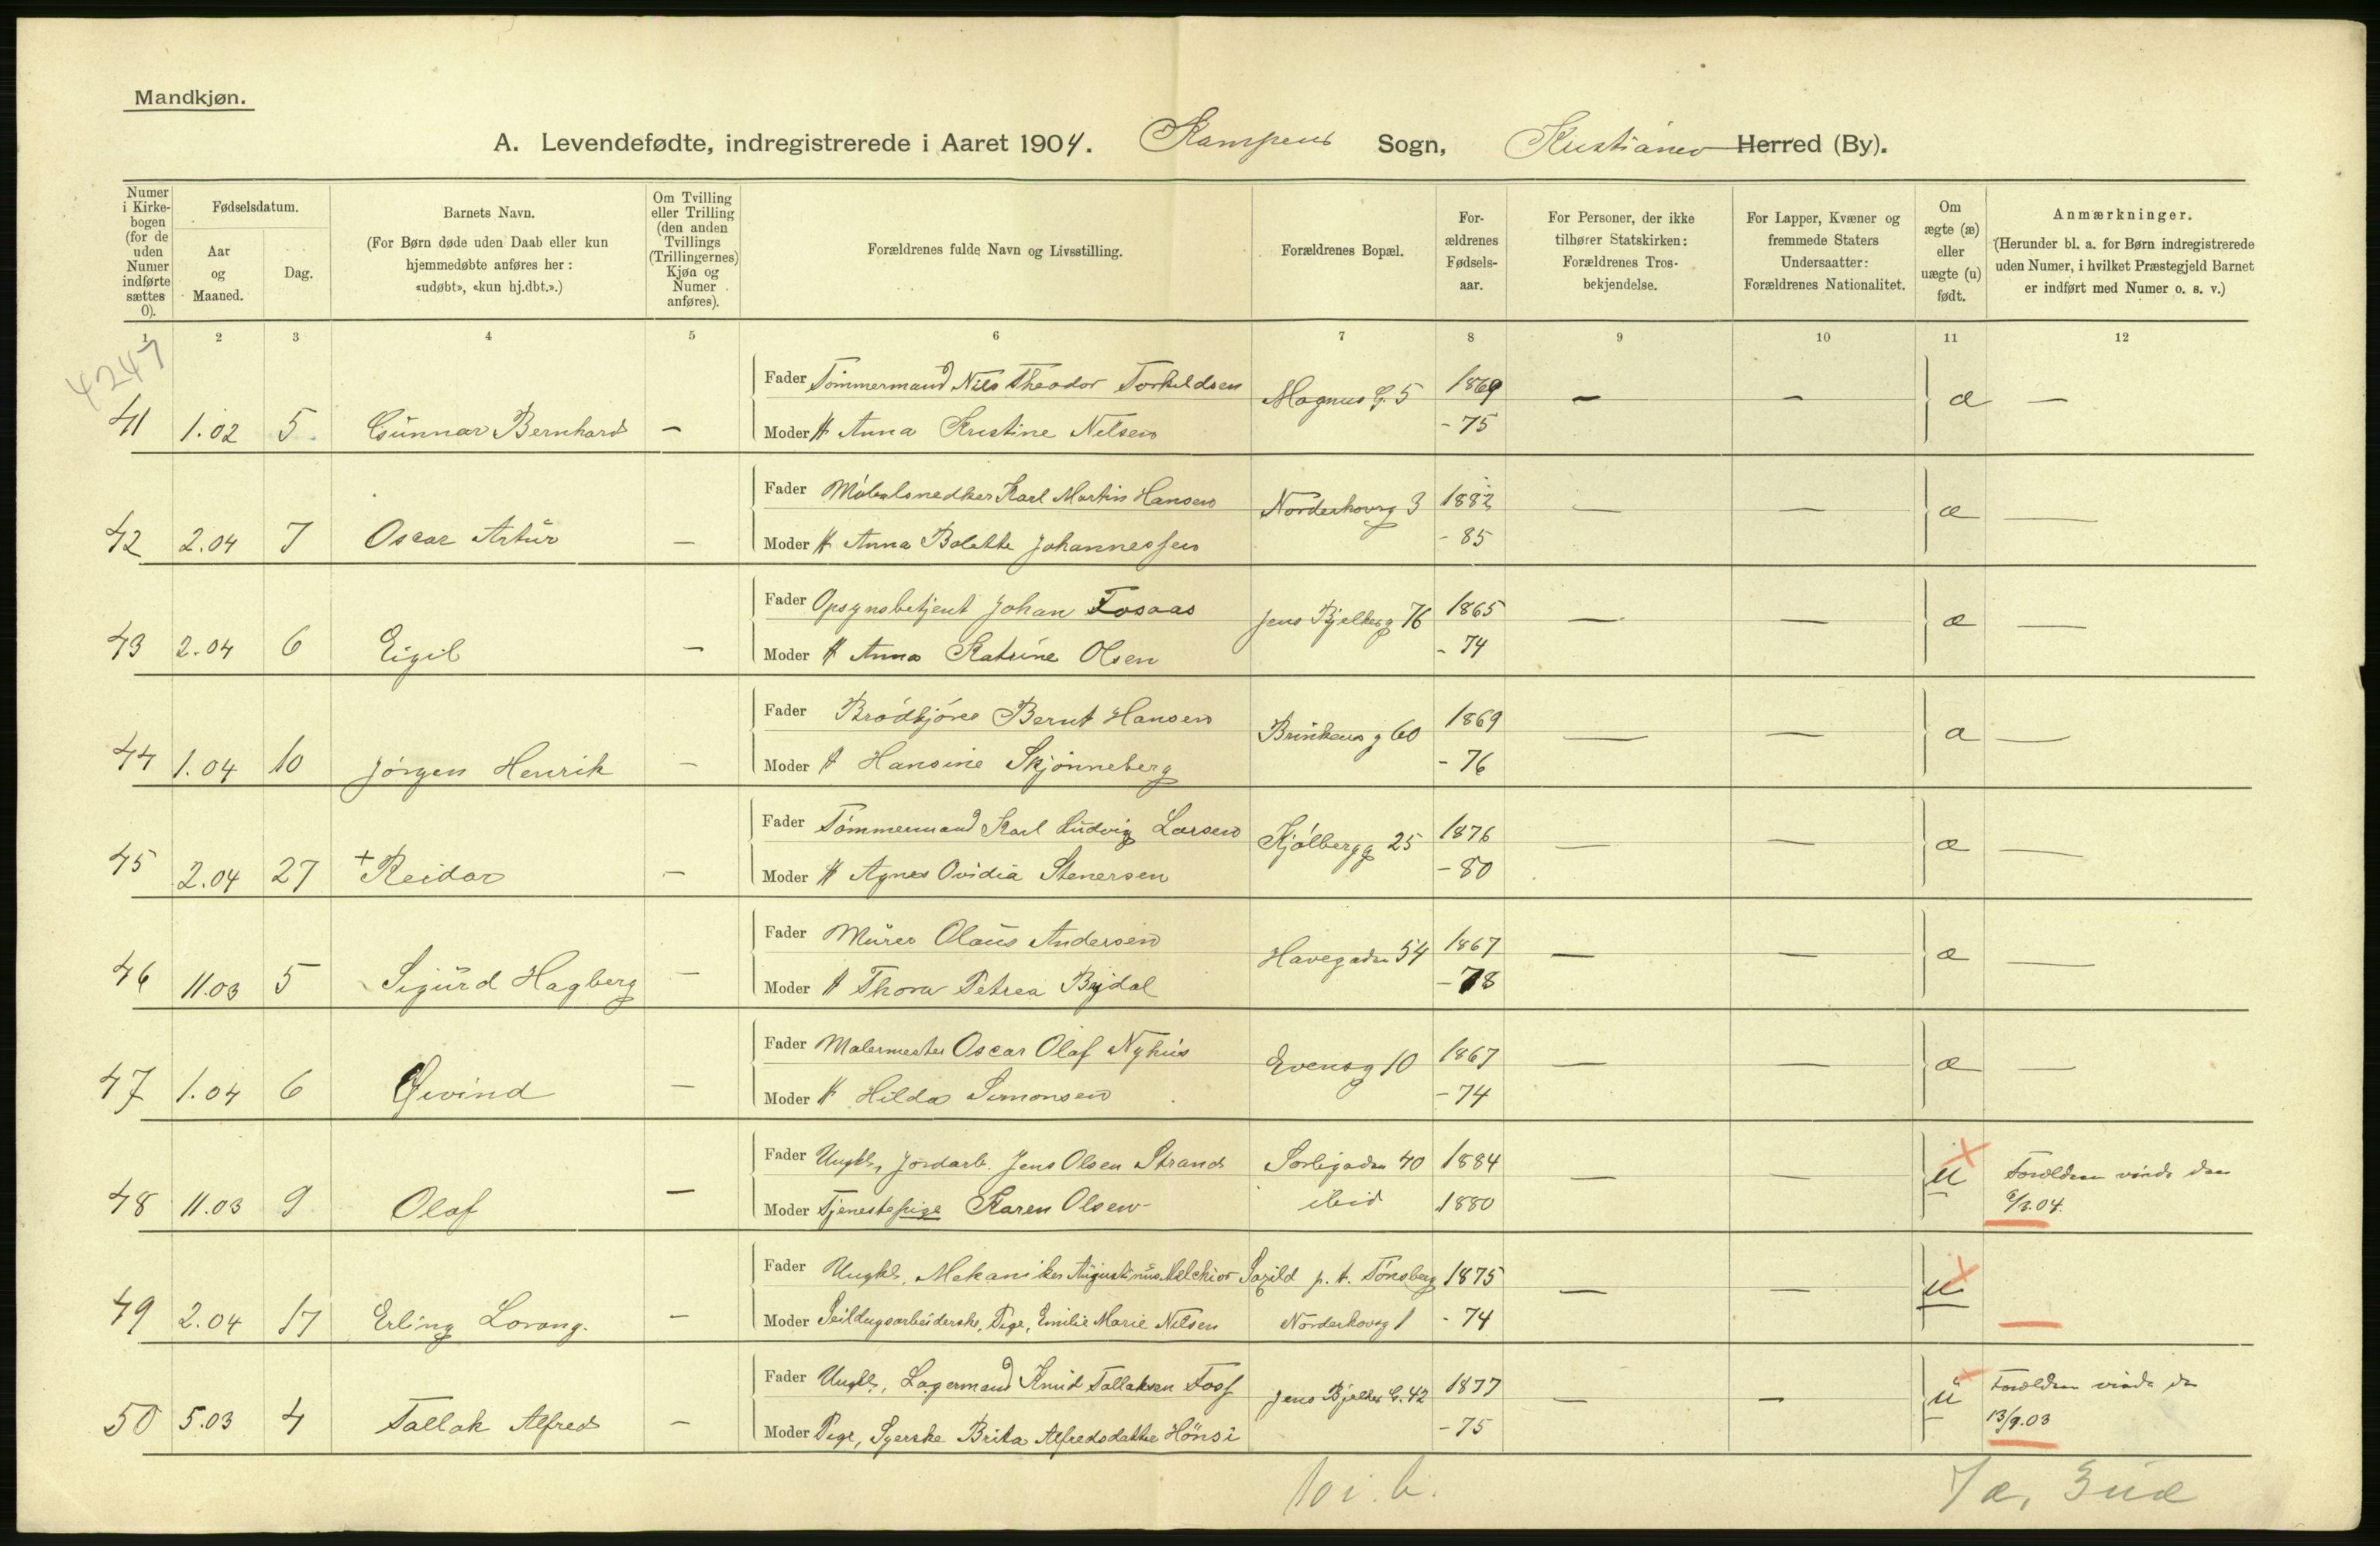 Mandkjøn.
A. Levendefødte, indregistrerede i Aaret 1904. Kampens Sogn, Kristiania Herred (By).
Numer i Kirkebogen (for de uden Numer indførte sættes 0).
Fødselsdatum.
Aar og Maaned.
Dag.
Barnets Navn.
(For Børn døde uden Daab eller kun hjemmedøbte anføres her: «udøbt», «kun hj.dbt.».)
Om Tvilling eller Trilling (den anden Tvillings (Trillingernes) Kjøn og Numer anføres).
Forældrenes fulde Navn og Livsstilling.
Forældrenes Bopæl.
Forældrenes Fødselsaar.
For Personer, der ikke tilhører Statskirken: Forældrenes Trosbekjendelse.
For Lapper, Kvæner og fremmede Staters Undersaatter: Forældrenes Nationalitet.
Om ægte (æ) eller uægte (u) født.
Anmærkninger.
(Herunder bl. a. for Børn indregistrerede uden Numer, i hvilket Præstegjeld Barnet er indført med Numer o. s. v.)
1 2 3 4 5 6 7 8 9 10 11 12
4247
Fader Tømmermand Nils Theodor Torkildsen Magnus G. 5 1869 - - æ -
41 1.02 5. Gunnar Bernhard - Moder H Anna Kristine Nilsen - 75
Fader Møbelsnedker Karl Martin Hansen Norderhovsg 3 1882 - - æ -
42 2.04 7 Oscar Artur - Moder H Anna Bolette Johannessen - 85
Fader Opsynsbetjent Johan Fosaas Jens Bjelkesg 76 1865 - - æ -
43 2.04 6 Eigil - Moder H Anna Katrine Olsen - 74
Fader Brødkjører Bernt Hansen Brinkens g 60 1869 - - æ -
44 1.04 10 Jørgen Henrik - Moder H Hansine Skjønneberg - 76
Fader Tømmermand Karl Ludvig Larsen Kjølbergg 25 1876 - - æ -
45 2.04 27 + Reidar - Moder H Agnes Ovidia Stenersen - 80
Fader Murer Olaus Andersen Havegaden 54 1867 - - æ -
46 11.03 5 Sigurd Hagberg - Moder H Thora Petrea Bydal - 78
Fader Malermester Oscar Olaf Nyhus Evensg 10 1867 - - æ -
47 1.04 6 Øivind - Moder H Hilda Simonsen - 74
Fader Ungk., Jordarb. Jens Olsen Strand Sorligaden 40 1884 - - u Forældrene viede den
48 11.03 9 Olaf - Moder Tjenestepige Karen Olsen ibid 1880 /3.04.
Fader Ungk., Mekaniker Augustinus Melchior Saxild p. t. Tønsberg 1875 - - u
49 2.04 17 Erling Lorang. - Moder Seildugsarbeiderske, Pige, Emilie Marie Nilsen Norderhovsg 1 - 74
Fader Ungk., Lagermand Knud Tallaksen Foss Jens Bjelkes G. 42 1877 - - u Forældrene viede den
50 5.03 4 Tallak Alfred - Moder Pige, Syerske Brita Alfredsdatter Hönsi - 75 13/9.03
10 i. b. 7 æ, 3 uæ